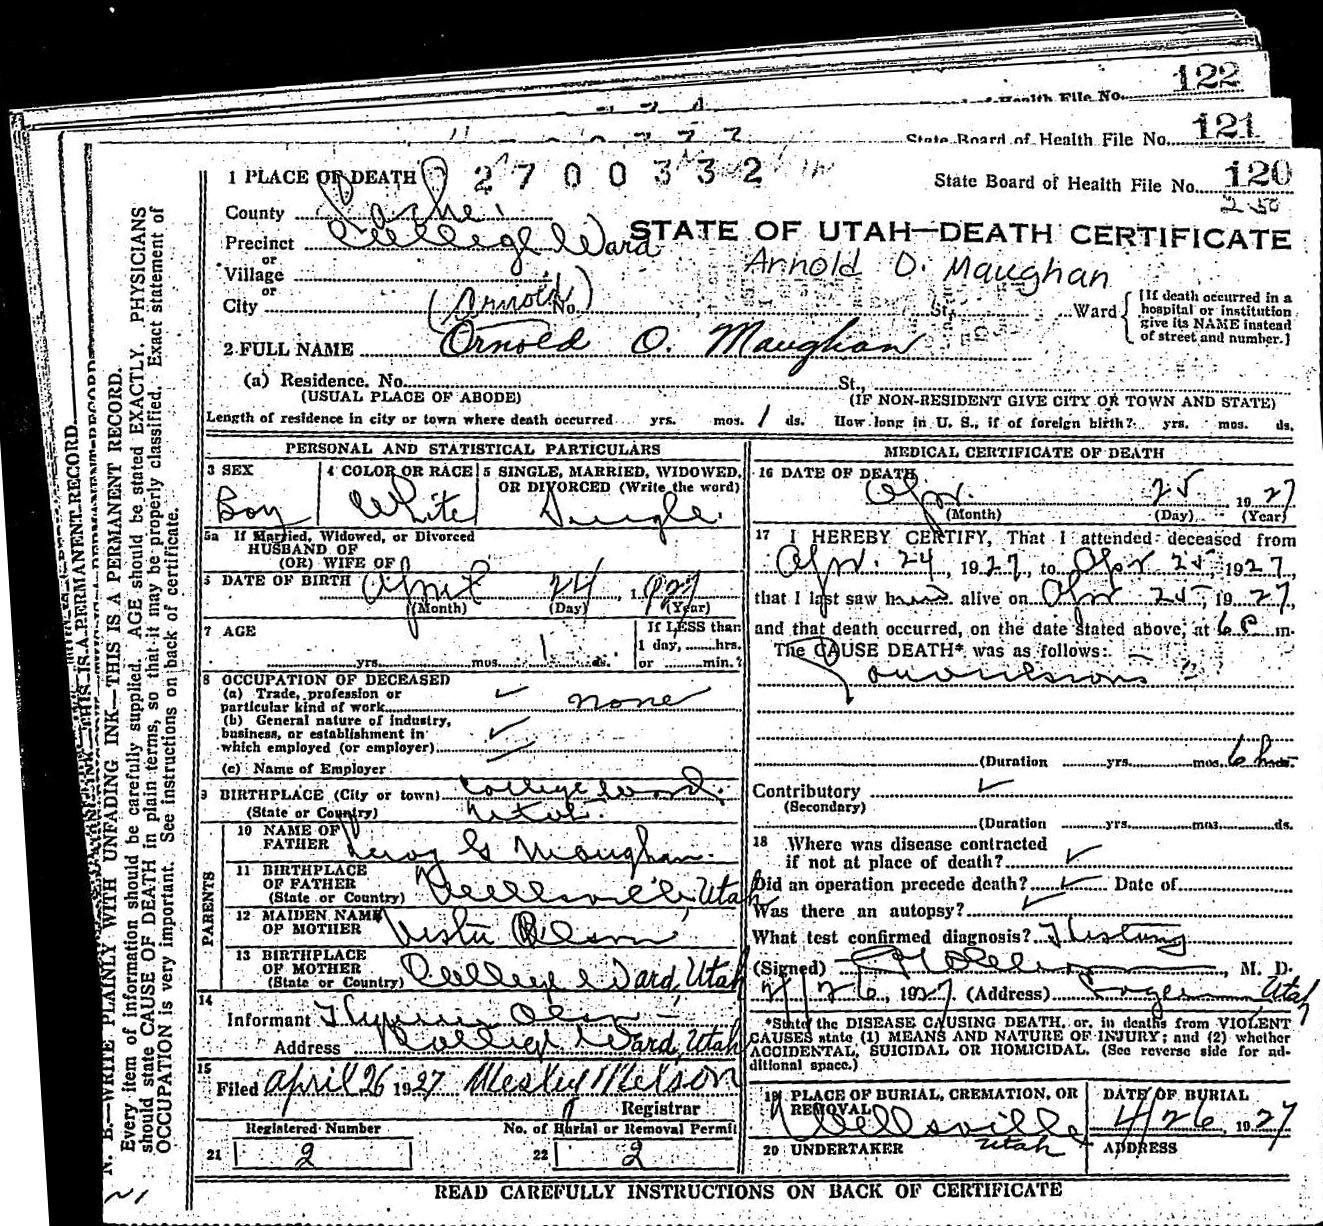 122
State Board of Health File No. 121
State Board of Health File No. 120
1 PLACE OF DEATH 2700332
County Cache
STATE OF UTAH—DEATH CERTIFICATE
Precinct College Ward
Arnold O. Maughan
or
Village
or
City (Arnold) No. St., Ward {[If death occurred in a
hospital or institution
give its NAME instead
of street and number.]
2 FULL NAME Ornold O. Maughan
(a) Residence. No. St.,
(USUAL PLACE OF ABODE) (IF NON-RESIDENT GIVE CITY OR TOWN AND STATE)
Length of residence in city or town where death occurred yrs. mos. 1 ds. How long in U. S., if of foreign birth? yrs. mos. ds.
PERSONAL AND STATISTICAL PARTICULARS
3 SEX
Boy
4 COLOR OR RACE
White
5 SINGLE, MARRIED, WIDOWED,
OR DIVORCED (Write the word)
Single
5a If Married, Widowed, or Divorced
HUSBAND OF
(OR) WIFE OF
DATE OF BIRTH April 24, 1927
(Month) (Day) (Year)
7 AGE
yrs. mos. 1 ds.
If LESS than
1 day, hrs.
or min.?
8 OCCUPATION OF DECEASED
(a) Trade, profession or
particular kind of work none
(b) General nature of industry,
business, or establishment in
which employed (or employer)
(c) Name of Employer
9 BIRTHPLACE (City or town) College Ward.
(State or Country) Utah.
PARENTS
10 NAME OF
FATHER Leroy G Maughan.
11 BIRTHPLACE
OF FATHER
(State or Country) Wellsville Utah
12 MAIDEN NAME
OF MOTHER Vesta Olson
13 BIRTHPLACE
OF MOTHER
(State or Country) College Ward, Utah
14
Informant Olson
Address College Ward, Utah
15
Filed April 26 1927 Wesley Nelson
Registrar
Registered Number No. of Burial or Removal Permit
21 2 22 2
MEDICAL CERTIFICATE OF DEATH
16 DATE OF DEATH
Apr. 25 1927
(Month) (Day) (Year)
17 I HEREBY CERTIFY, That I attended deceased from
Apr. 24, 1927, to Apr 25, 1927,
that I last saw him alive on Apr 25, 1927,
and that death occurred, on the date stated above, at 6 P m.
The CAUSE DEATH* was as follows:
Convulsions
(Duration yrs. mos. 6 hrs.
Contributory
(Secondary)
(Duration yrs. mos. ds.
18 Where was disease contracted
if not at place of death?
Did an operation precede death? Date of
Was there an autopsy?
What test confirmed diagnosis? History
(Signed) M. D.
4/26, 1927 (Address) Logan Utah
*State the DISEASE CAUSING DEATH, or, in deaths from VIOLENT
CAUSES state (1) MEANS AND NATURE OF INJURY; and (2) whether
ACCIDENTAL, SUICIDAL OR HOMICIDAL. (See reverse side for ad-
ditional space.)
19 PLACE OF BURIAL, CREMATION, OR
REMOVAL
Wellsville
Utah
DATE OF BURIAL
4/26, 1927
20 UNDERTAKER ADDRESS
READ CAREFULLY INSTRUCTIONS ON BACK OF CERTIFICATE
N. B.—WRITE PLAINLY WITH UNFADING INK—THIS IS A PERMANENT RECORD.
Every item of information should be carefully supplied. AGE should be stated EXACTLY. PHYSICIANS
should state CAUSE OF DEATH in plain terms, so that it may be properly classified. Exact statement of
OCCUPATION is very important. See instructions on back of certificate.